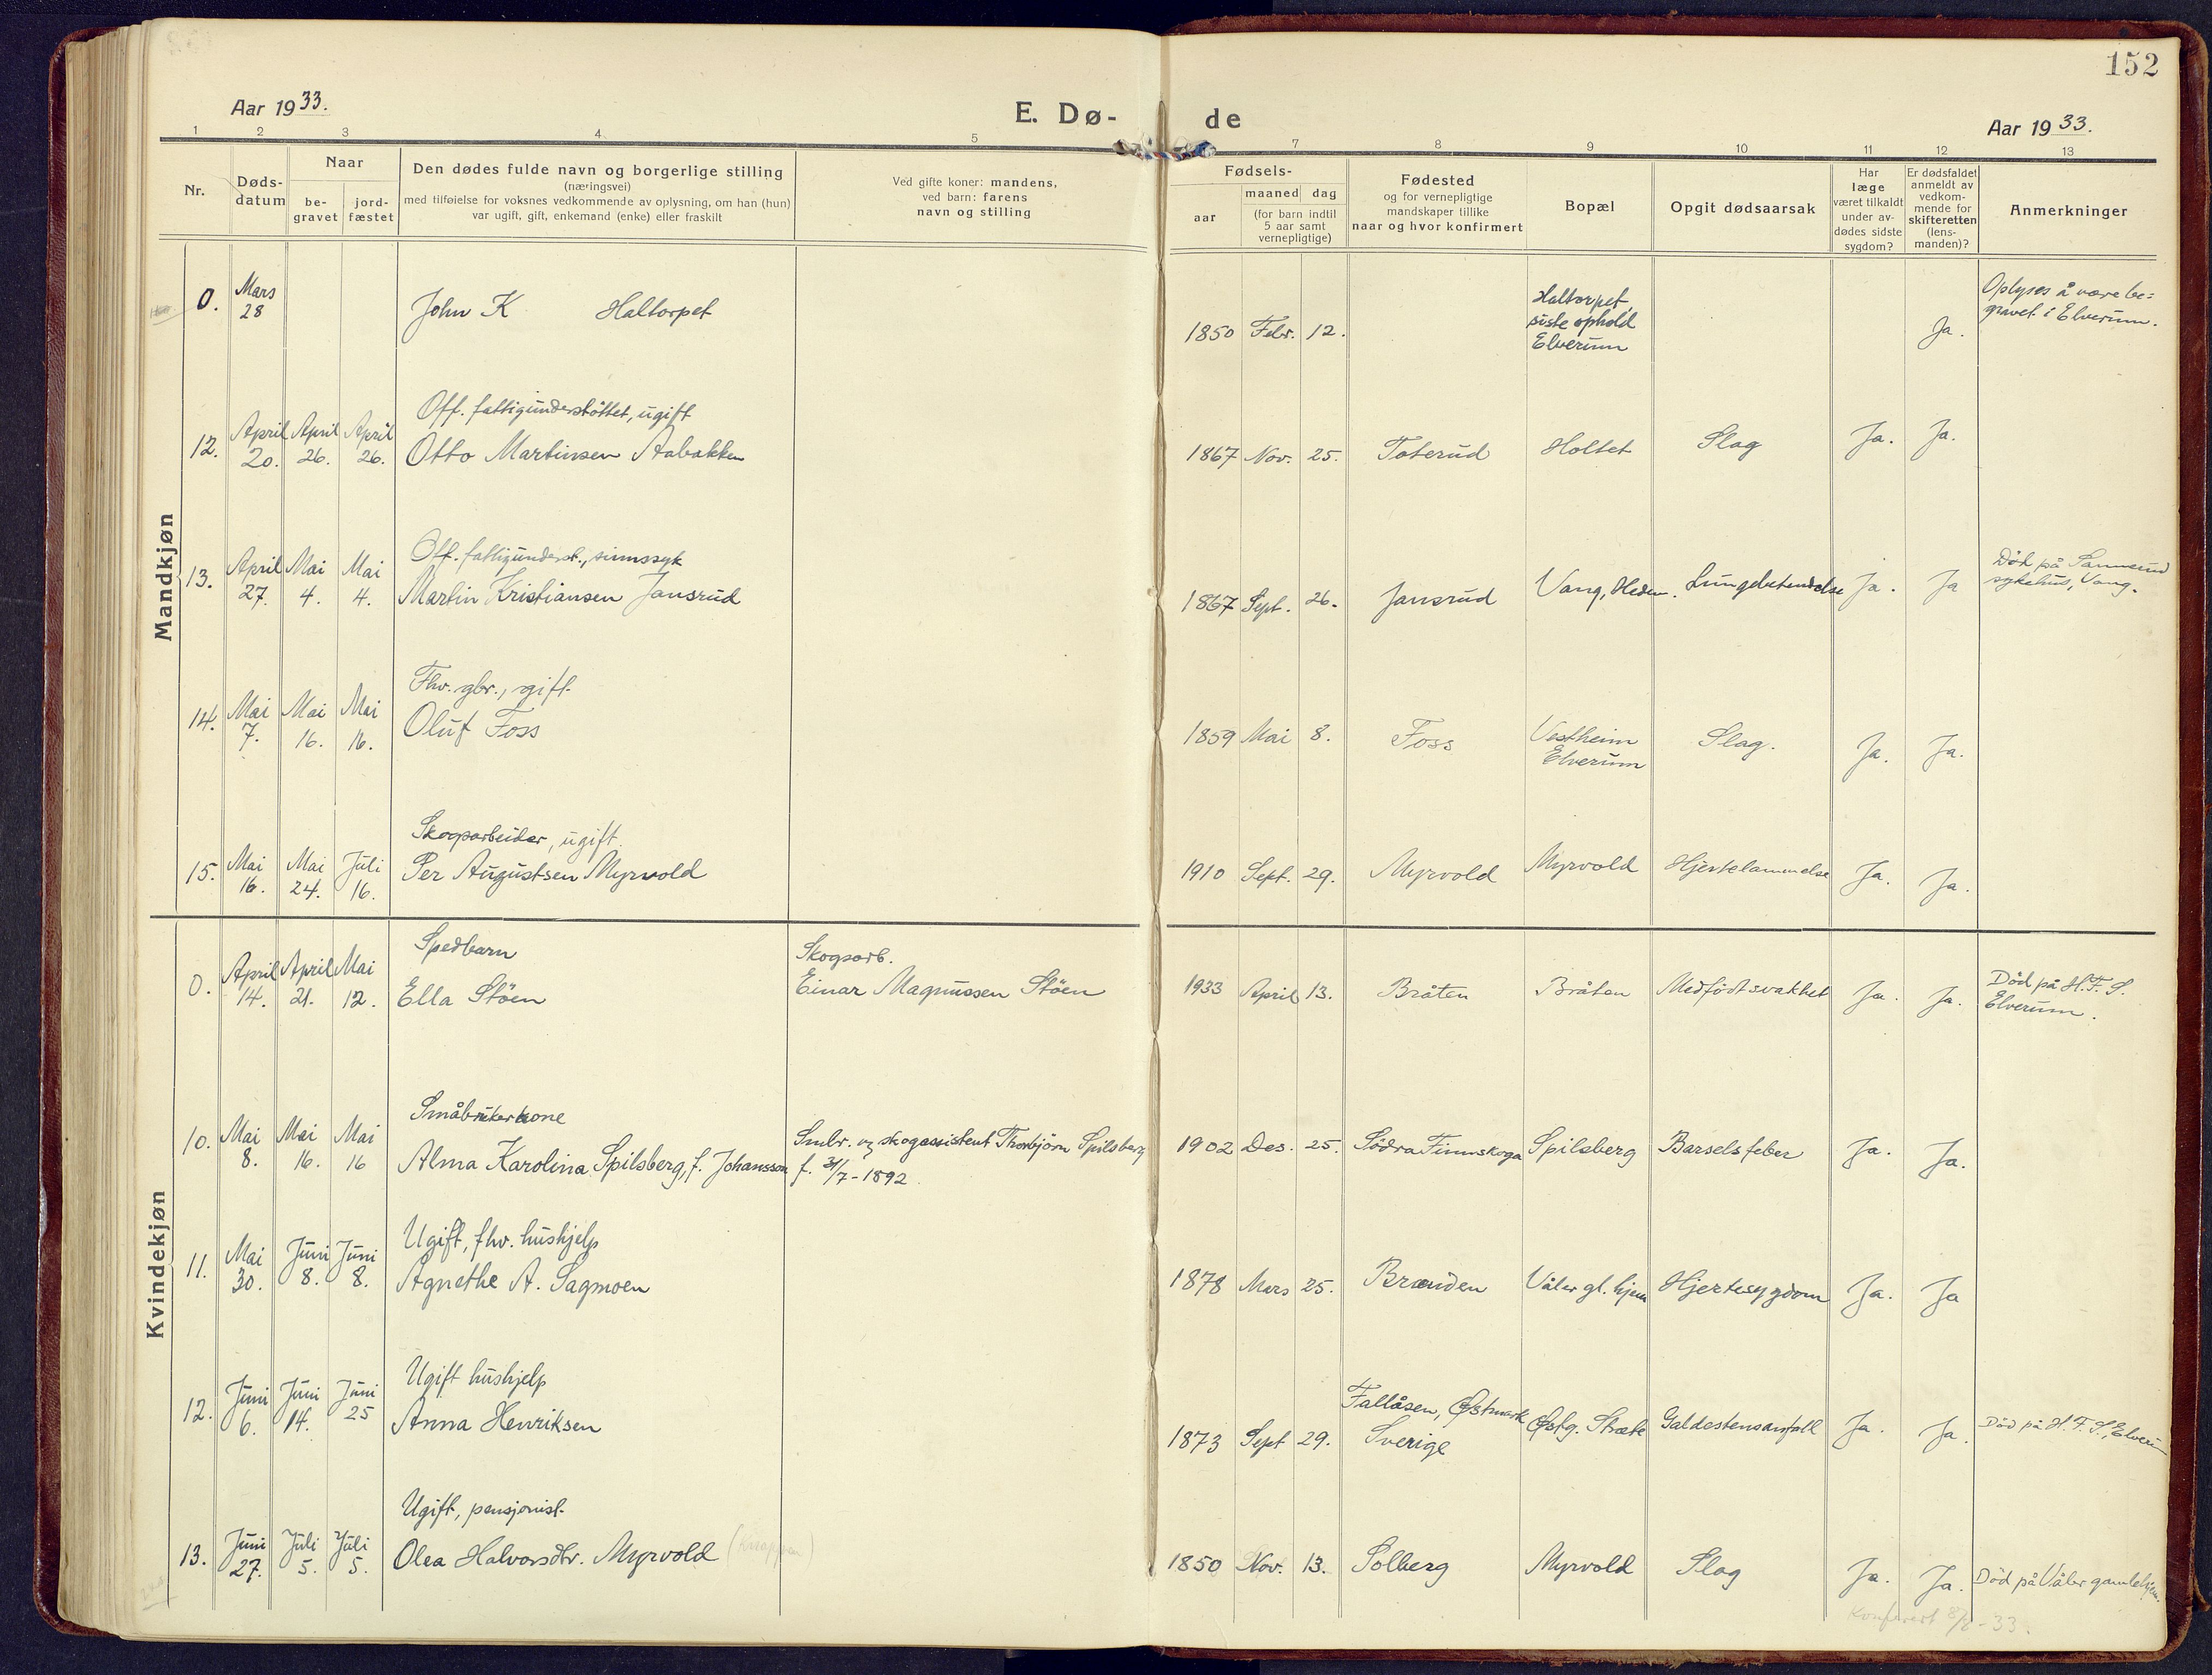 152
Aar 1933.
E. Dø-
de
Aar 1933.
1 2 3 4 5 7 8 9 10 11 12 13
Nr.
Døds-
datum
Naar
be-
gravet
jord-
fæstet
Den dødes fulde navn og borgerlige stilling
(næringsvei)
med tilføielse for voksnes vedkommende av oplysning, om han (hun)
var ugift, gift, enkemand (enke) eller fraskilt
Ved gifte koner: mandens,
ved barn: farens
navn og stilling
Fødsels-
aar
maaned dag
(for barn indtil
5 aar samt
vernepligtige)
Fødested
og for vernepligtige
mandskaper tillike
naar og hvor konfirmert
Bopæl
Opgit dødsaarsak
Har
læge
været tilkaldt
under av-
dødes sidste
sygdom?
Er dødsfaldet
anmeldt av
vedkom-
mende for
skifteretten
(lens-
manden)?
Anmerkninger
Mandkjøn
0. Mars
28
John K Haltorpet
1850 Febr. 12.
Haltorpet
siste ophold
Elverum
Ja.
Oplyses å være be=
gravet i Elverum.
Off. fattigunderstöttet, ugift
12. April 20. April 26. April 26.
Otto Martinsen Aabakken
1867 Nov. 25. Toterud Holtet Slag Ja. Ja.
Off. fattigunderst., sinnssyk
13. April 27. Mai 4. Mai 4.
Martin Kristiansen Jansrud
1867 Sept. 26. Jansrud Vang, Hedm. Lungebetendelse Ja. Ja
Död på Sannerud
sykehus, Vang.
Fhv. gbr., gift
14. Mai 7. Mai 16. Mai 16.
Oluf Foss
1859 Mai 8. Foss Vestheim
Elverum
Slag. Ja. Ja.
Skogsarbeider, ugift.
15. Mai 16. Mai 24. Juli 16.
Per Augustsen Myrvold
1910 Sept. 29. Myrvold Myrvold Hjertelammelse Ja. Ja.
Kvindekjøn
Spedbarn
0. April 14. April 21. Mai 12.
Ella Stöen
Skogsarb.
Einar Magnussen Stöen
1933 April 13. Bråten Bråten Medfödt svakhet Ja. Ja.
Död på H.F.S.
Elverum.
Småbrukerkone
10. Mai 8. Mai 16. Mai 16
Alma Karolina Spilsberg, f. Johansson
Smbr. og skogassistent Thorbjörn Spilsberg
f. 31/7-1892
1902 Des. 25. Södra Finnskoga Spilsberg Barselsfeber Ja. Ja.
Ugift, fhv. hushjelp
11. Mai 30. Juni 8. Juni 8.
Agnethe A. Sagmoen
1878 Mars 25. Brænden Våler gl. hjem Hjertesygdom Ja. Ja
Ugift hushjelp
12. Juni 6. Juni 14. Juni 25
Anna Henriksen
1873 Sept 29. Fallåsen, Østmark
Sverige
Østg. Stræte Galdestensanfall Ja. Ja.
Död på H.F.S., Elverum
Ugift, pensjonist
13. Juni 27. Juli 5. Juli 5.
Olea Halvorsdtr. Myrvold
1850 Nov. 13. Solberg Myrvold Slag Ja. Ja.
Död på Våler gamlehjem.
Konferert 8/8-33.